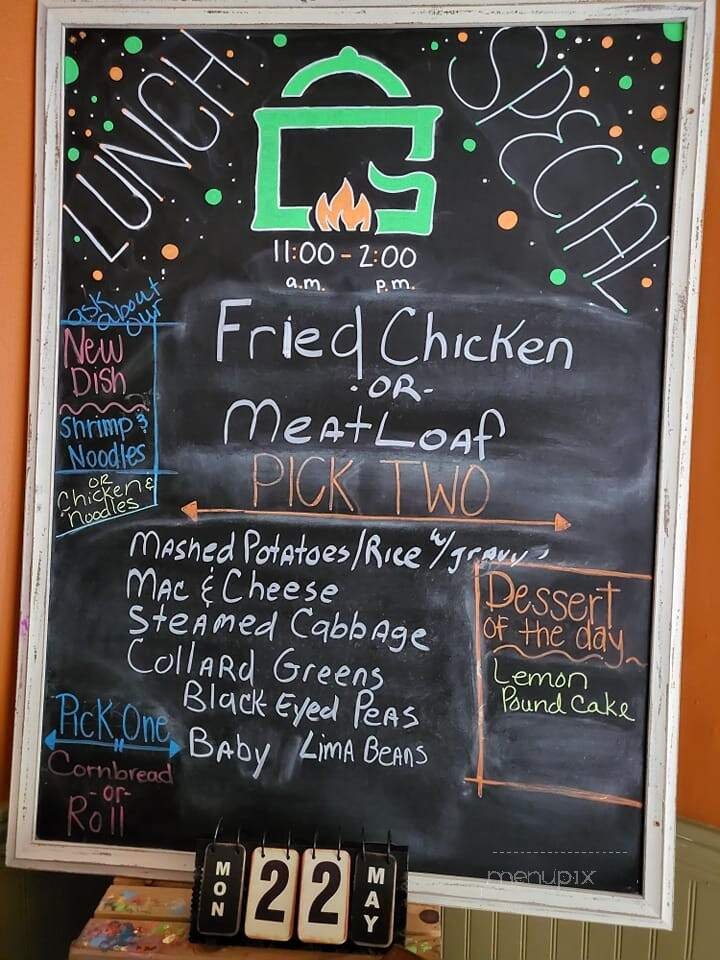 LUNCH SPECIAL
11:00 - 2:00
a.m. p.m.
ask about our
New
Dish
Shrimp &
Noodles
OR
Chicken &
Noodles
Fried Chicken
- OR -
Meatloaf
PICK TWO
Mashed Potatoes/Rice w/ gravy
Mac & Cheese
Steamed Cabbage
Collard Greens
Black Eyed Peas
Baby Lima Beans
Pick One
Cornbread
- or -
Roll
Dessert
of the day
Lemon
Pound Cake
menupix
MON 22 MAY